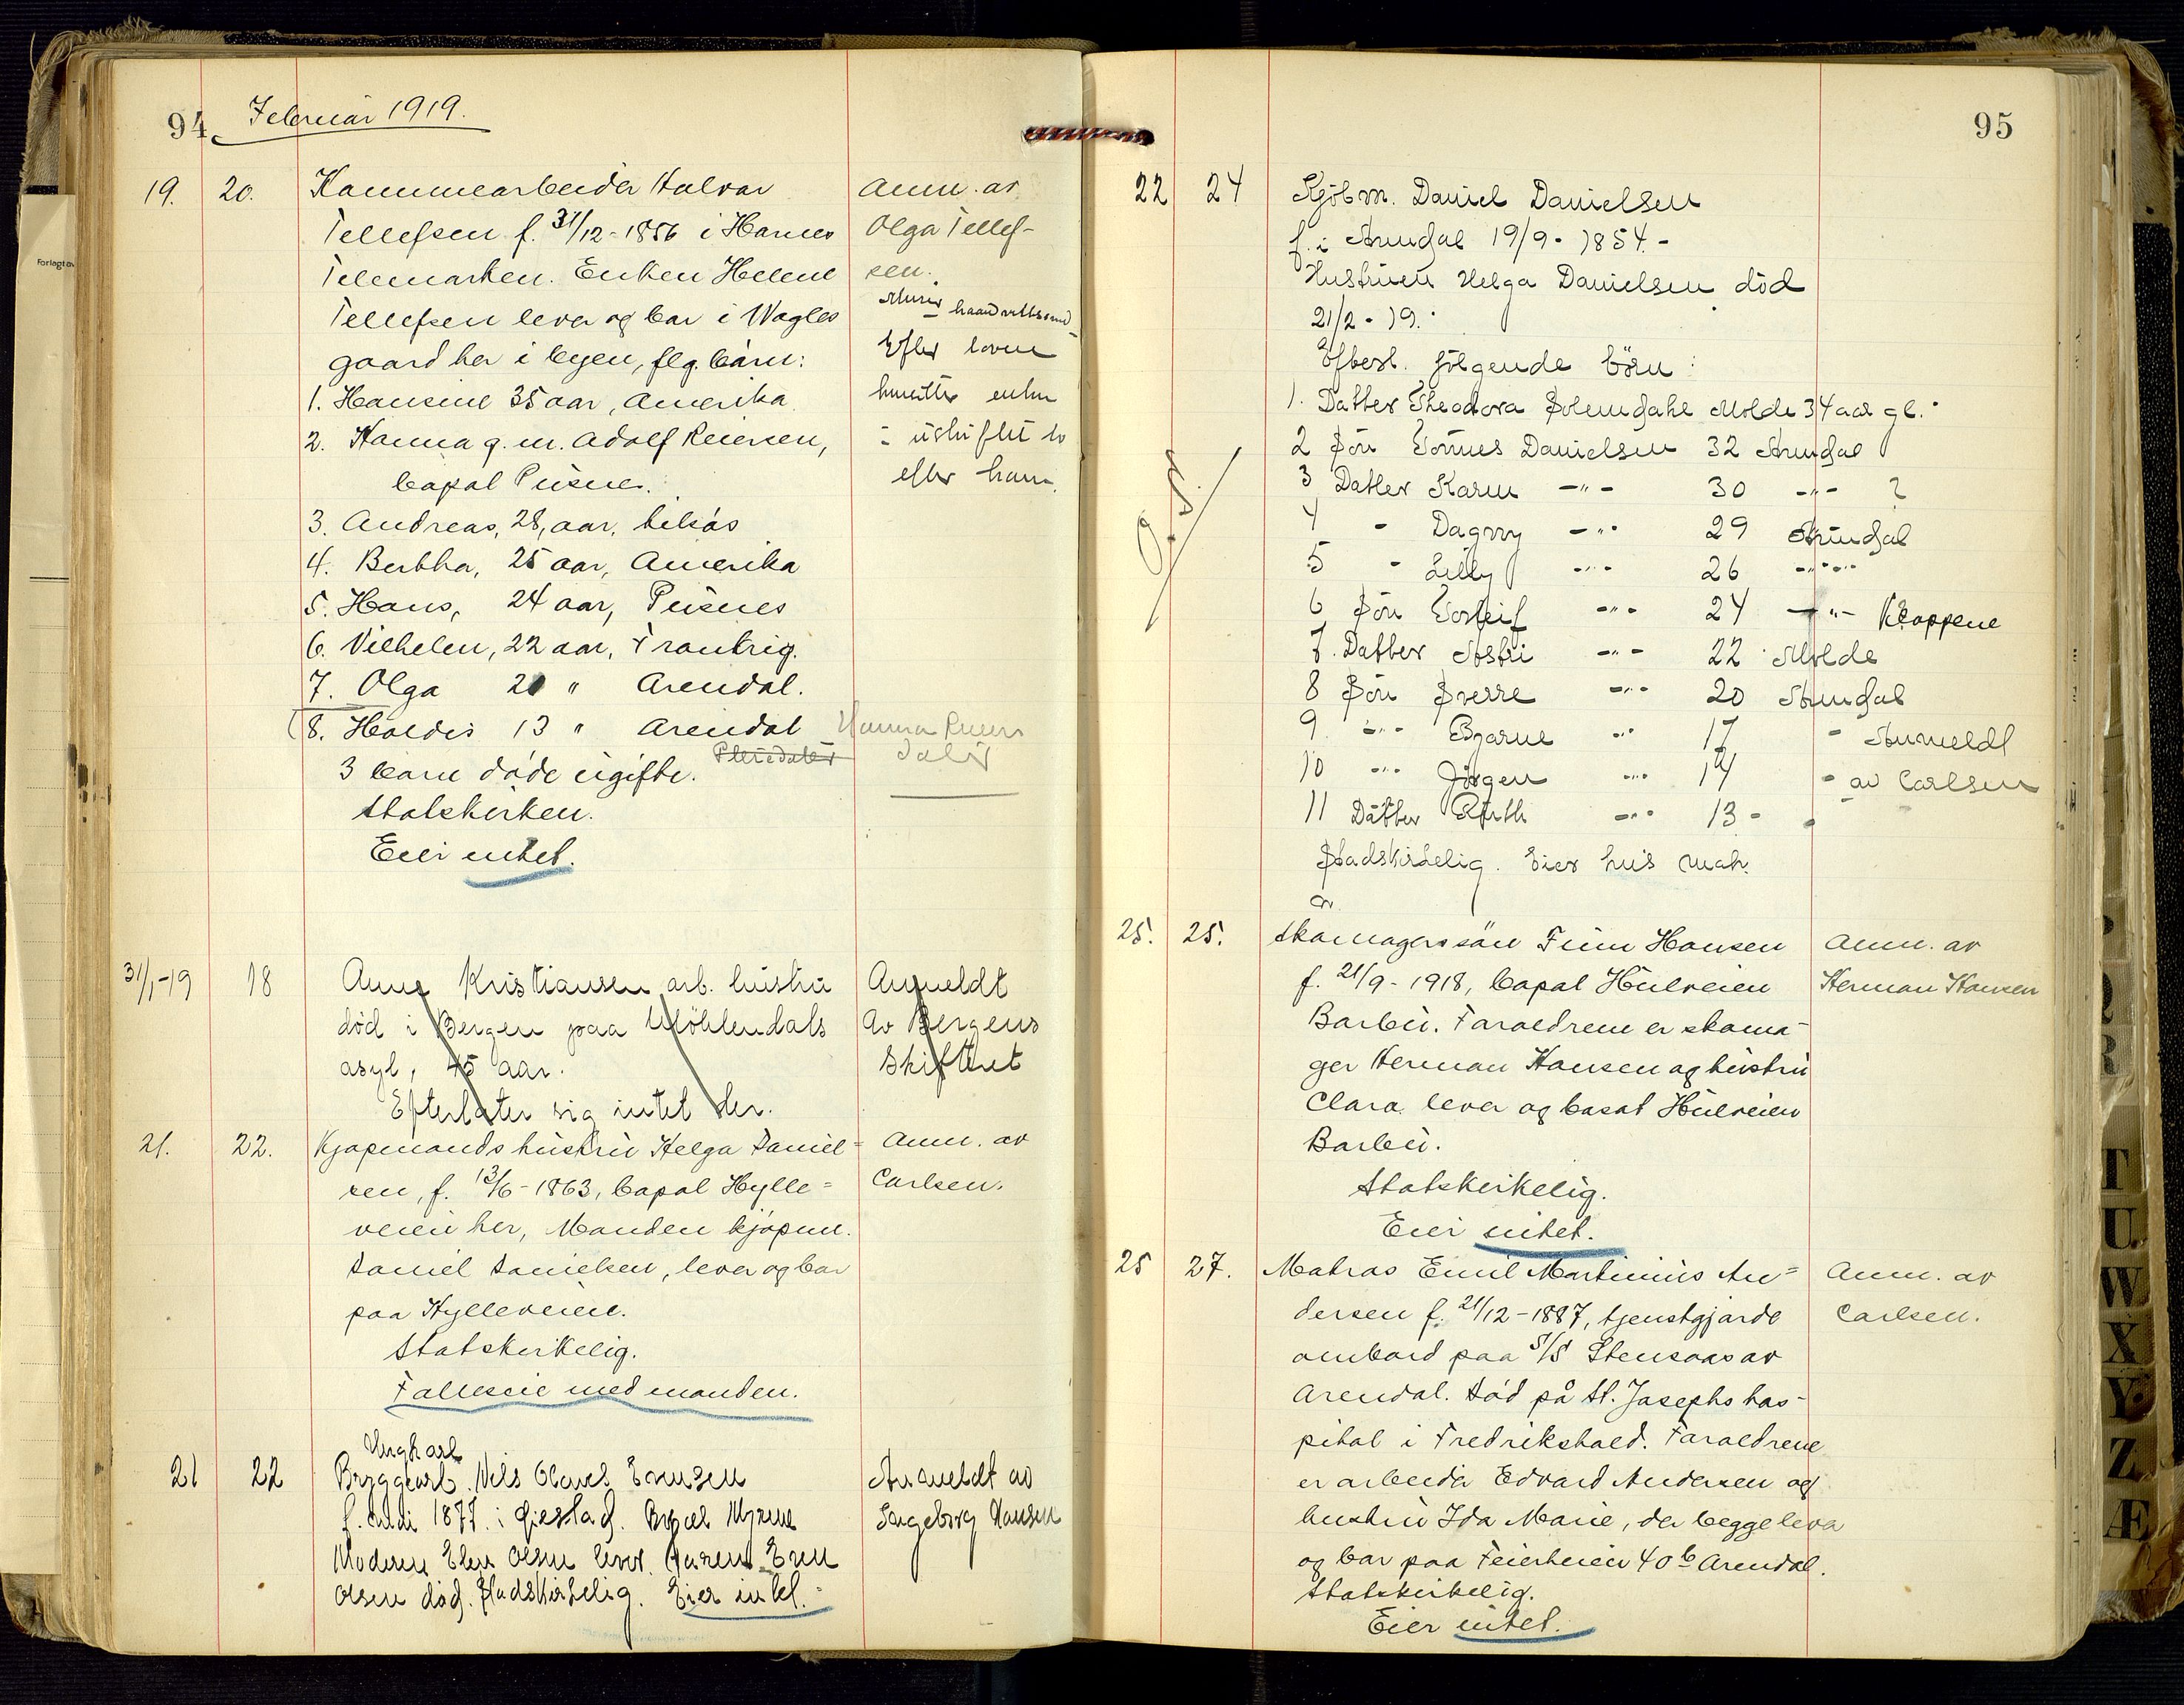 94 Februar 1919.
19. 20. Kommunearbeider Halvor
Tellefsen f. 31/12-1856 i
Telemarken. Enken Helene
Tellefsen lever og bor i Wagles
gaard her i byen, flg. barn:
1. Hansine 35 aar, Amerika
2. Hanna g. m. Adolf Reiersen,
bopæl Pusnes.
3. Andreas, 28, aar, tilsjøs
4. Bertha, 25 aar, Amerika
5. Hans, 24 aar, Pusnes
6. Vilhelm, 22 aar, Frankrig.
7. Olga 20 " Arendal.
8. Haldis 13 " Arendal
3 barn døde ugifte.
Statskirken.
Eier intet.
Anm. av
Olga Tellef-
sen.
Efter loven
enken
i uskiftet bo
efter ham.
Hanna Reiers
datter
31/1-19 18 Anna Kristiansen arb. hustru
død i Bergen paa Møhlendals
asyl, 45 aar.
Efterlater sig intet der.
Anmeldt
av Bergens
Skifteret
21. 22. Kjøpmands hustru Helga Daniel=
sen, f. 13/6-1863, bopæl Hylle=
veien her, Manden kjøpm.
Daniel Danielsen, lever og bor
paa Hylleveien.
Statskirkelig.
Fælleseie med manden.
Anm. av
Carlsen.
Ungkarl
21 22 Bryggearb. Nils Olaus Evensen
f. 1877. i Øiestad. Myrene
Moderen Elen Olsen lever. Faren Even
Olsen død. Stadskirkelig. Eier intet.
Anmeldt av
Ingeborg Hansen
95
22 24 Kjøbm. Daniel Danielsen
f. i Arendal 19/9-1854.-
Hustruen Helga Danielsen død
21/2-19.
Efterl. følgende börn:
1. Datter Theodora Molde 34 aar gl.
2 Søn Tomes Danielsen 32 Arendal
3 Datter Karin -"- 30 -"- ?
4 - Dagny -"- 29 Arendal
5 - Lilly -"- 26 -"-
6 Søn Torleif -"- 24 -"- Kloppene
7. Datter Astri -"- 22 Molde
8 Søn Sverre -"- 20 Arendal
9. -"- Bjarne -"- 17 -
10 -"- Jörgen -"- 14 -
11 Datter Ruth -"- 13 -
Stadskirkelig. Eier hus mak.
Anmeldt
av Carlsen
25. 25. Skomagers søn Finn Hansen
f. 21/9-1918, bopæl Hulveien
Barbu. Forældrene er skoma-
ger Herman Hansen og hustru
Clara lever og bosat Hulveien
Barbu.
Statskirkelig.
Eier intet.
Anm. av
Herman Hansen
25 27. Matros Emil Martinius An=
dersen f. 21/12-1887, tjenstgjorde
ombord paa S/S Stensaas av
Arendal. Død på St. Josephs hos-
pital i Fredrikshald. Forældrene
er arbeider Edvard Andersen og
hustru Ida Marie, der begge lever
og bor paa Feierheien 40b Arendal.
Statskirkelig.
Eier intet.
Anm. av
Carlsen.
T
U
W
X
Y
Z
Æ